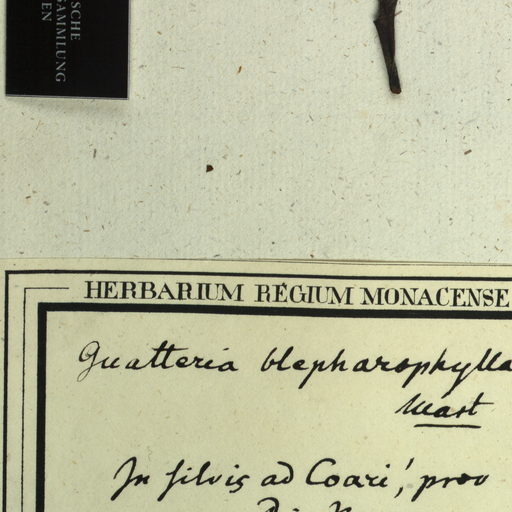 SCHE
SAMMLUNG
EN
HERBARIUM REGIUM MONACENSE
Guatteria blepharophylla
Mart
In silvis ad Coari! prov